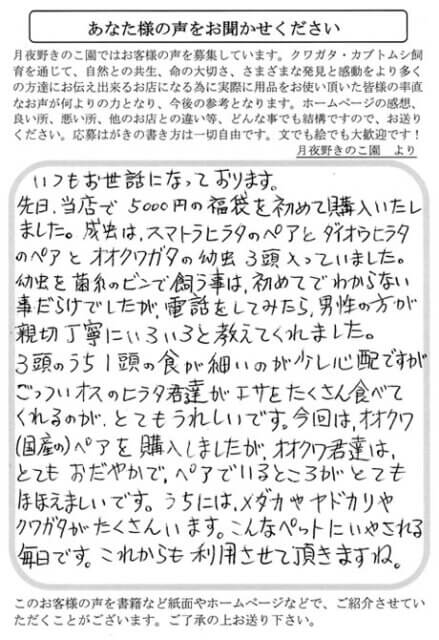 あなた様の声をお聞かせください
月夜野きのこ園ではお客様の声を募集しています。クワガタ・カブトムシ飼
育を通じて、自然との共生、命の大切さ、さまざまな発見と感動をより多く
の方達にお伝え出来るお店になる為に実際に用品をお使い頂いた皆様の率直
なお声が何よりの力となり、今後の参考となります。ホームページの感想、
良い所、悪い所、他のお店との違い等、どんな事でも結構ですので、お送り
ください。応募はがきの書き方は一切自由です。文でも絵でも大歓迎です！
月夜野きのこ園 より
いつもお世話になっております。
先日、当店で 5000円の福袋を初めて購入いたし
ました。成虫は、スマトラヒラタのペアと ダイオウヒラタ
のペアと オオクワガタの幼虫 3頭入っていました。
幼虫を菌糸のビンで飼う事は、初めてでわからない
事だらけでしたが、電話をしてみたら、男性の方が
親切丁寧にいろいろと教えてくれました。
3頭のうち1頭の食が細いのが少し心配ですが
ごっついオスのヒラタ君達がエサをたくさん食べて
くれるのが、とてもうれしいです。今回は、オオクワ
(国産の)ペアを購入しましたが、オオクワ君達は、
とてもおだやかで、ペアでいるところがとても
ほほえましいです。うちには、メダカやヤドカリや
クワガタがたくさんいます。こんなペットにいやされる
毎日です。これからも利用させて頂きますね。
このお客様の声を書籍など紙面やホームページなどで、ご紹介させてい
ただくことがございます。ご了承の上お送り下さい。